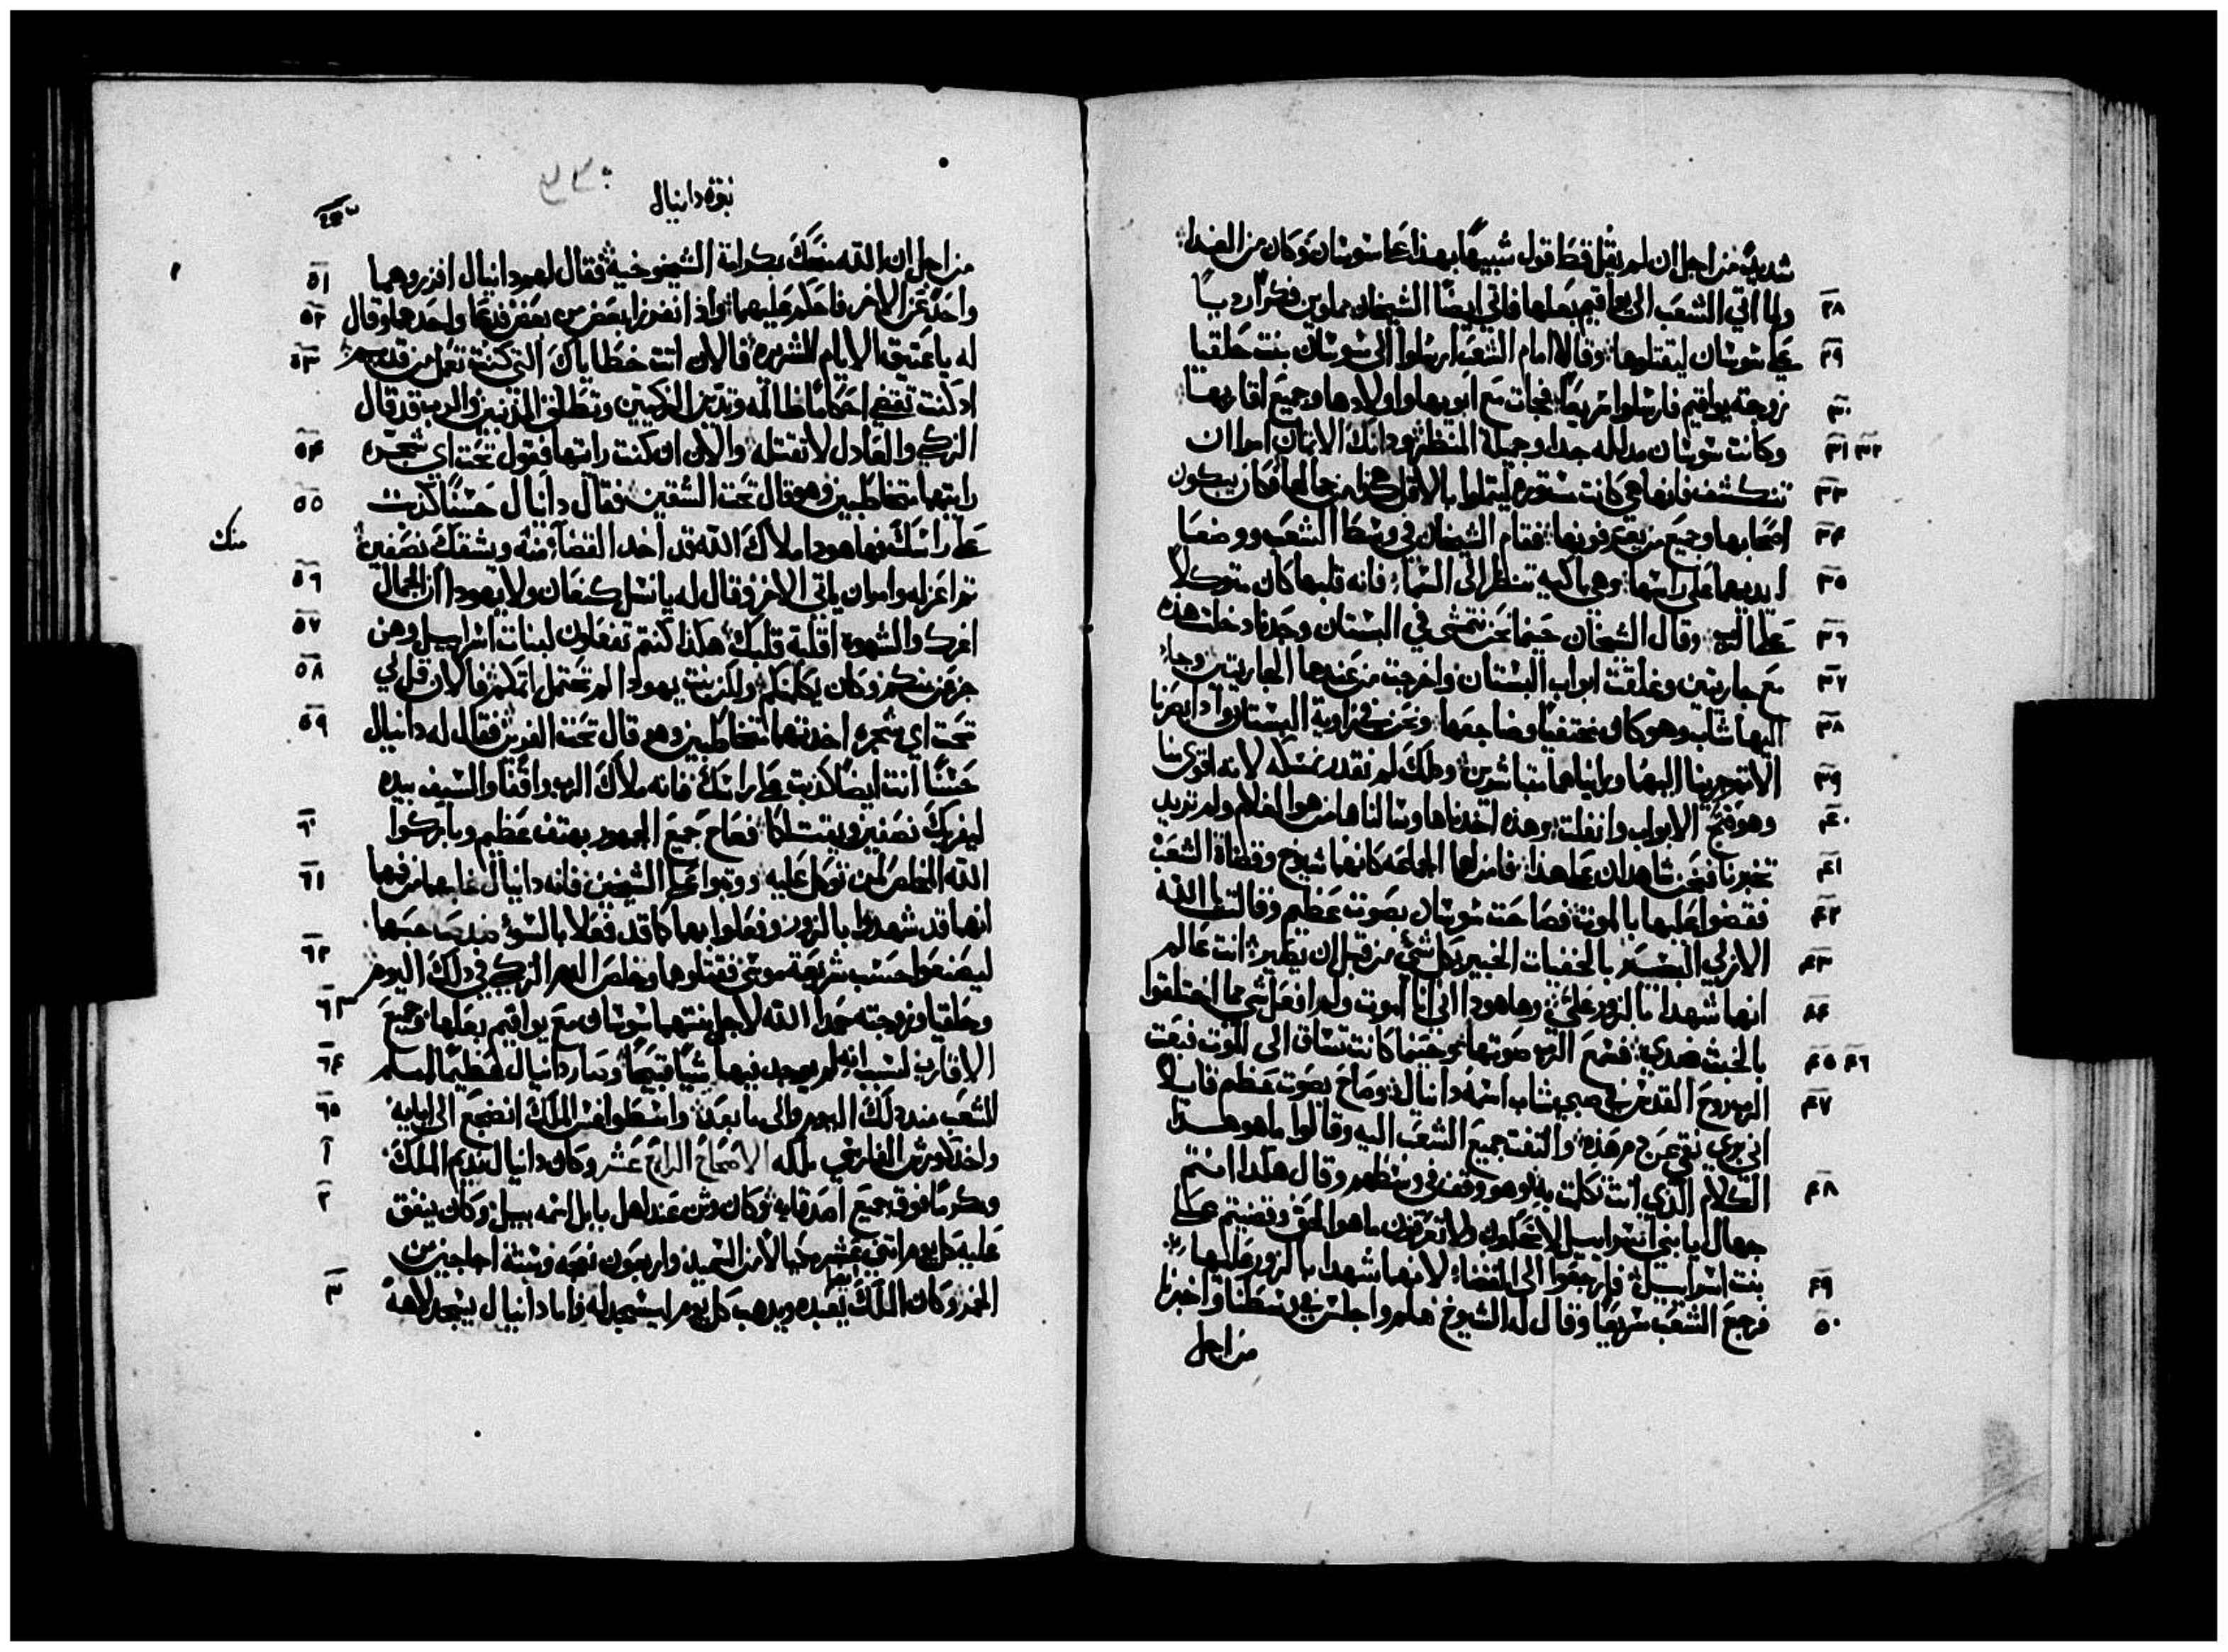 شديدًا من اجل ان لم يقل قط قول شبيهًا بهذا على سوسان وكان من الغد
٢٨ ولما اتي الشعب الى يواقيم بعلها فاتي ايضًا الشيخان مملوين فكرًا رديًا
٢٩ على سوسان ليقتلوها وقالا امام الشعب ارسلوا الى سوسان بنت حلقيا
٣٠ زوجة يواقيم فارسلوا سريعًا فجات مع ابويها واولادها وجميع اقاربها
٣١ ٣٢ وكانت سوسان مدلله جدا وجميلة المنظر وذانك الاثمان امرا ان
٣٣ تنكشف فانها هي كانت مستوره ليتملوا بالاقل هكذا من جمالها فكان يبكون
٣٤ اصحابها وجميع من يعرفونها فقام الشيخان في وسط الشعب ووضعا
٣٥ ايديهما على راسها وهي باكيه تنظر الى السما فانه قلبها كان متوكلاً
٣٦ على الله وقال الشيخان حينما نحن نتمشى في البستان وحدنا دخلت هذه
٣٧ مع جاريتين وغلقت ابواب البستان واخرجت من عندها الجاريتين وجا
٣٨ اليها شاب وهو كان مختفيًا وضاجعها ونحن في زاوية البستان واذ ابصرنا
٣٩ الاثم جرينا اليهما ورايناهما متباشرين وذلك لم نقدر نمسكه لانه اقوى منا
٤٠ وهو فتح الابواب وانفلت وهذه اخذناها وسالناها من هو الغلام ولم تريد
٤١ تخبرنا فنحن شاهدان على هذا فامنت لهما الجماعه كانهما شيوخ وقضاة الشعب
٤٢ فقضوا عليها بالموت فصاحت سوسان بصوت عظيم وقالت يا الله
٤٣ الازلي البصير بالخفيات الخبير بكل شي من قبل ان يصير انت عالم
٤٤ انهما شهدا بالزور علي وها هوذا اني انا اموت ولم افعل شي مما اختلقوا
٤٥ ٤٦ بالخبث ضدي فسمع الرب صوتها وحينما كانت تساق الى الموت فبعث
٤٧ الرب روح القدس في صبي شاب اسمه دانيال وصاح بصوت عظيم قايلاً
اني بري نقي من دم هذه والتفت جميع الشعب اليه وقالوا ما هو هذا
٤٨ الكلام الذي انت تكلمت به وهو وقف في وسطهم وقال هكذا انتم
جهال يا بني اسراييل لا تحكمون ولا تعرفون ما هو الحق وقضيتم على
٤٩ بنت اسراييل فارجعوا الى القضا لانهما شهدا بالزور عليها
٥٠ فرجع الشعب سريعًا وقال له الشيوخ هلم واجلس في وسطنا واخبرنا
من اجل
نبوة دانيال
٥١ من اجل ان الله منحك بكرامة الشيخوخية فقال لهم دانيال افرزوهما
٥٢ واحدًا عن الاخر فاحكم عليهما واذ انفرزا بعض من بعض فدعا واحدهما وقال
٥٣ له يا عتيق الايام الشريره فالان اتت خطاياك التي كنت تعمل من قديم
اذ كنت تقضي احكامًا ظالمه وتدين الزكيين وتطلق المذنبين والرب قد قال
٥٤ الزكي والعادل لا تقتله والان ان كنت رايتها فقول تحت اي شجره
٥٥ رايتهما متخاطبين وهو قال تحت الشقين فقال دانيال حسنًا كذبت
على راسك فها هوذا ملاك الله قد اخذ القضا منه ويشقك نصفين
منك
٥٦ ثم اعزله وامر ان ياتي الاخر وقال له يا نسل كنعان ولا يهوذا ان الجمال
٥٧ اغرك والشهوه اقلبة قلبك هكذا كنتم تفعلون لبنات اسراييل وهن
٥٨ جزعن منكم وكان يكلمنكم ولكن بنت يهوذا لم تحتمل اثمكم فالان قل لي
٥٩ تحت اي شجره اخذتهما متخاطبين وهو قال تحت الفرش فقال له دانيال
حسنًا انت ايضًا كذبت على راسك فانه ملاك الرب واقفًا والسيف بيده
٦٠ ليفريك نصفين ويقتلكما فصاح جميع الجمهور بهتف عظيم وباركوا
٦١ الله المخلص لمن توكل عليه ووثبوا على الشيخين فانه دانيال غلبهما من فيهما
انهما قد شهدوا بالزور وفعلوا بهما كما قد فعلا بالسوء ضد صاحبتها
٦٢ ليصنعوا حسب شريعة موسى فقتلوهما وخلص الدم الزكي في ذلك اليوم
٦٣ وحلقيا وزوجته مجدا الله لاجل بنتهما سوسان مع يواقيم بعلها وجميع
٦٤ الاقارب لسبب انه لم يوجد فيها شيًا قبيحًا وصار دانيال عظيمًا امام
٦٥ الشعب منذ ذلك اليوم والى ما بعد واسطواغس الملك انضجع الى ابايه
١ واخذ كورش الفارسي ملكه الاصحاح الرابع عشر وكان دانيال نديم الملك
٢ ومكرمًا فوق جميع اصدقايه وكان وثن عند اهل بابل اسمه بيل وكان ينفق
عليه كل يوم اثني عشر مكيالاً من السميد واربعون نعجه وستة اجاجين من
٣ الخمر وكان الملك يعبده ويذهب كل يوم ليسجد له واما دانيال يسجد لالاهه